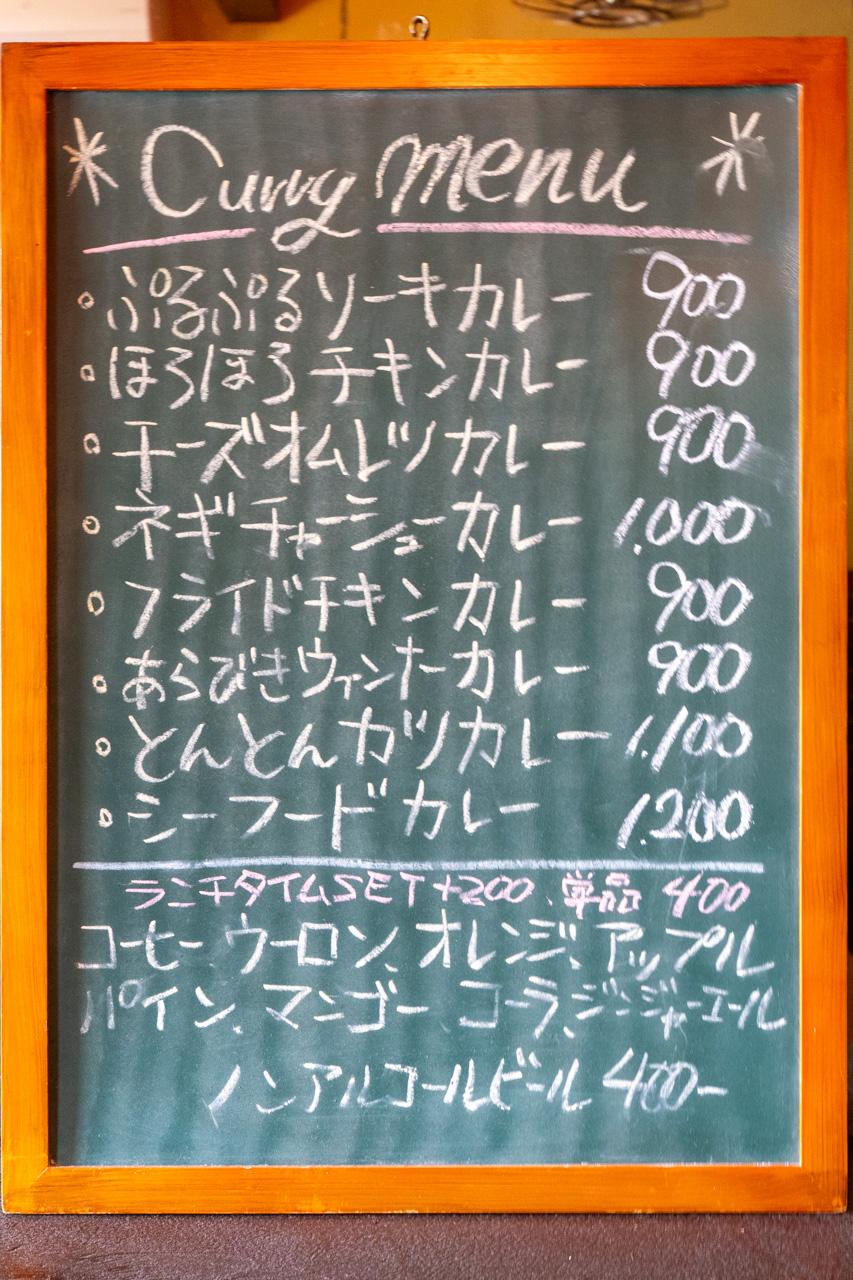 * Curry Menu *
○ ぷるぷるソーキカレー 900
○ ほろほろチキンカレー 900
○ チーズオムレツカレー 900
○ ネギチャーシューカレー 1.000
○ フライドチキンカレー 900
○ あらびきウィンナーカレー 900
○ とんとんカツカレー 1.100
○ シーフードカレー 1.200
ランチタイムSET +200、単品 400
コーヒー、ウーロン、オレンジ、アップル
パイン、マンゴー、コーラ、ジンジャーエール
ノンアルコールビール 400-